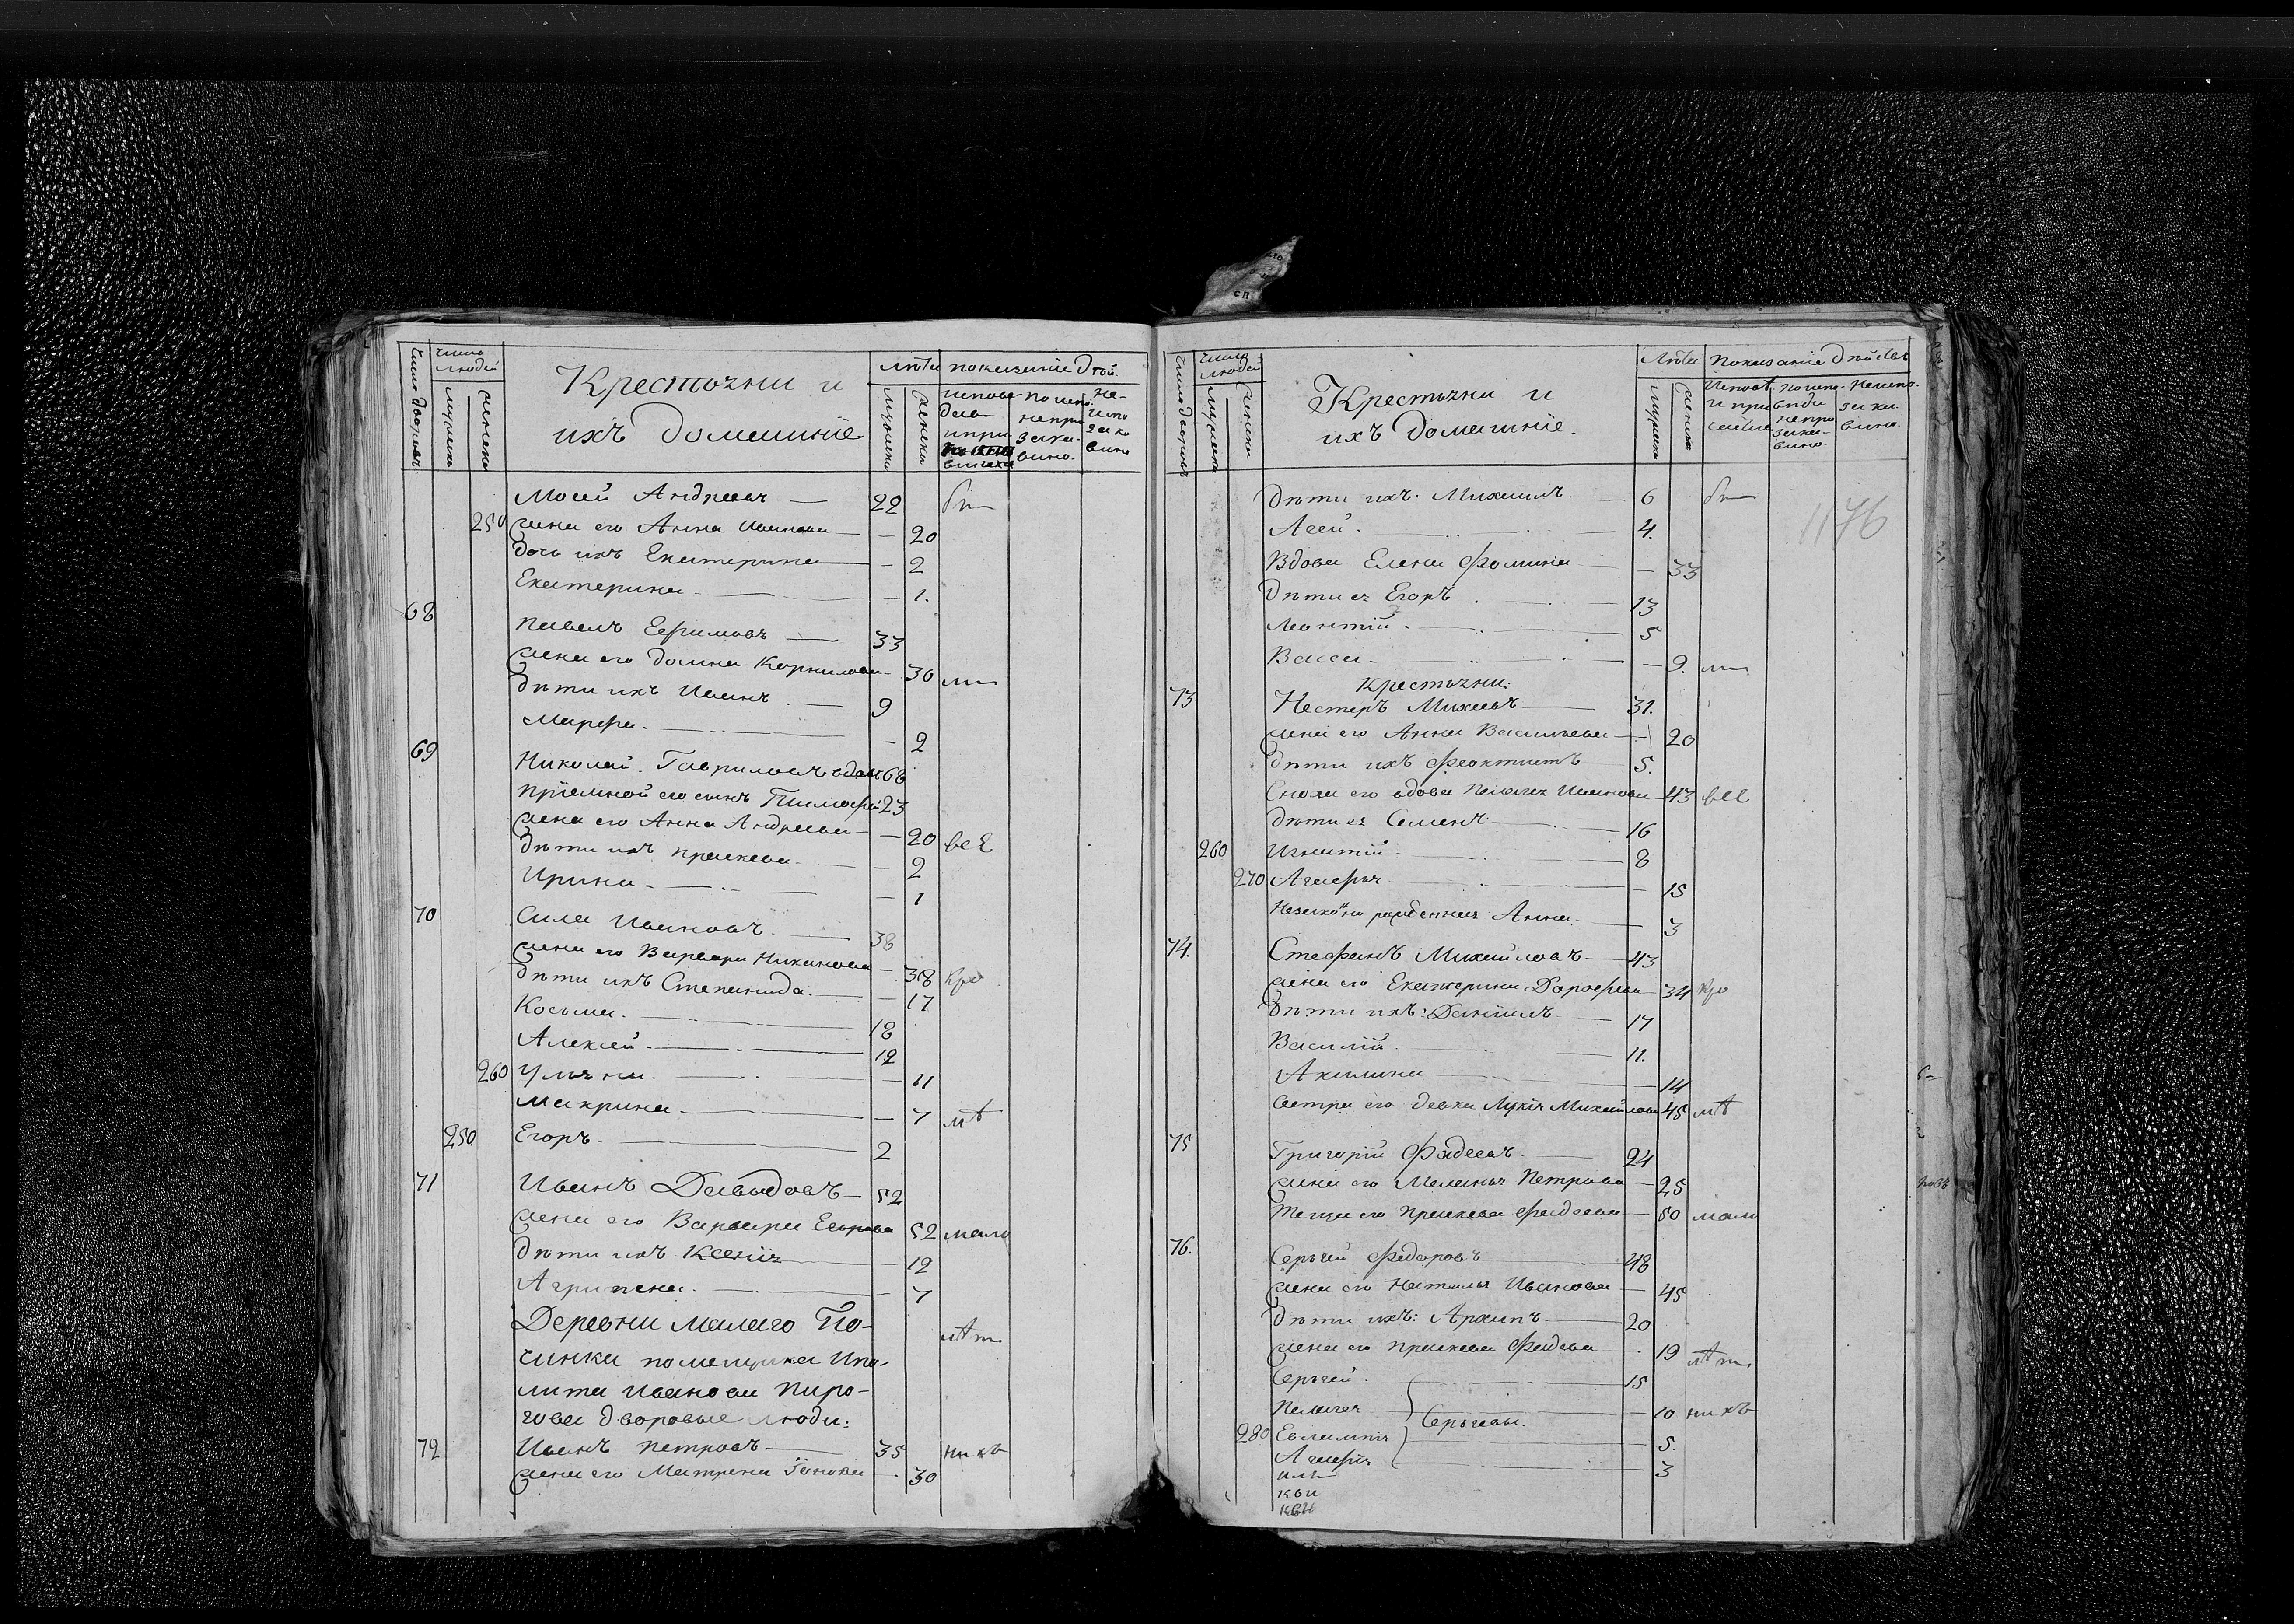 число дворовъ
число людей
мужеска
женска
Крестьяни и
ихъ домашніе
лѣты
мужеска
женска
показаніе дѣй.
Моѵсей Андреевъ — 22
250 жена его Анна Иванова — 20
дочь ихъ Екатерина — 2
Екатерина — 1.
68
Павелъ Ефимовъ — 33
жена его Домна Корнилова — 30
дѣти ихъ Иванъ — 9
Марфа — 2
69
Николай Гавриловъ вдовъ 68
пріемной его сынъ Тимофей 23
жена его Анна Андреева — 20 всѣ
дѣти ихъ Праскева — 2
Ирина — 1
70
Сила Ивановъ — 38
жена его Варвара Никанова — 38 кро
дѣти ихъ Степанида — 17
Косьма — 18
Алексей — 12
260 Ульяна — 11
Макрина — 7 мѣ
250 Егоръ — 2
71 Иванъ Давыдовъ — 52
жена его Варвара Егорова 52 мало
дѣти ихъ Ксенія — 12
Агрипена — 7
Деревни Малаго По-
чинка помещика Ипо- лѣт
лита Иванова Пиро-
гова дворовые люди:
72 Иванъ Петровъ — 35 нихъ
жена его Матрена — 30
число дворовъ
число людей
мужеска
женска
Крестьяни и
ихъ домашніе.
лѣты
мужеска
женска
Показаніе дѣйства
дѣти ихъ: Михаилъ — 6
1176
Агей — 4.
Вдова Елена Фомина — 33
дѣти ея Егоръ — 13
Леонтій — 5
Васса — 9.
Крестьяни:
73 Нестеръ Михеевъ — 31.
жена его Анна Васильева — 20
дѣти ихъ Феоктистъ — 5.
Сноха его вдова Пелагея Иванова 43 всѣ
дѣти ея Семенъ — 16
260 Игнатій — 8
270 Агафья — 15
Незаконо рожденная Анна — 3
74. Стефанъ Михайловъ — 43
жена его Екатерина Дорофеева 34 кро
дѣти ихъ: Даніилъ — 17
Василій — 11.
Акилина — 14
сестра его девка Лукія Михайлова 45 мѣ
75
Григорій Фадеевъ — 24
жена его Меланья Петрова — 25
теща его Праскева Фадеева — 50 мало
76.
Сергѣй Федоровъ — 48
жена его Наталья Иванова — 45
дѣти ихъ: Архипъ — 20
жена его Праскева — 19 лѣт
Сергѣй — 15
Пелагея — 10 нихъ
Сергѣевы.
280 Евлампія — 5.
Агафія — 3